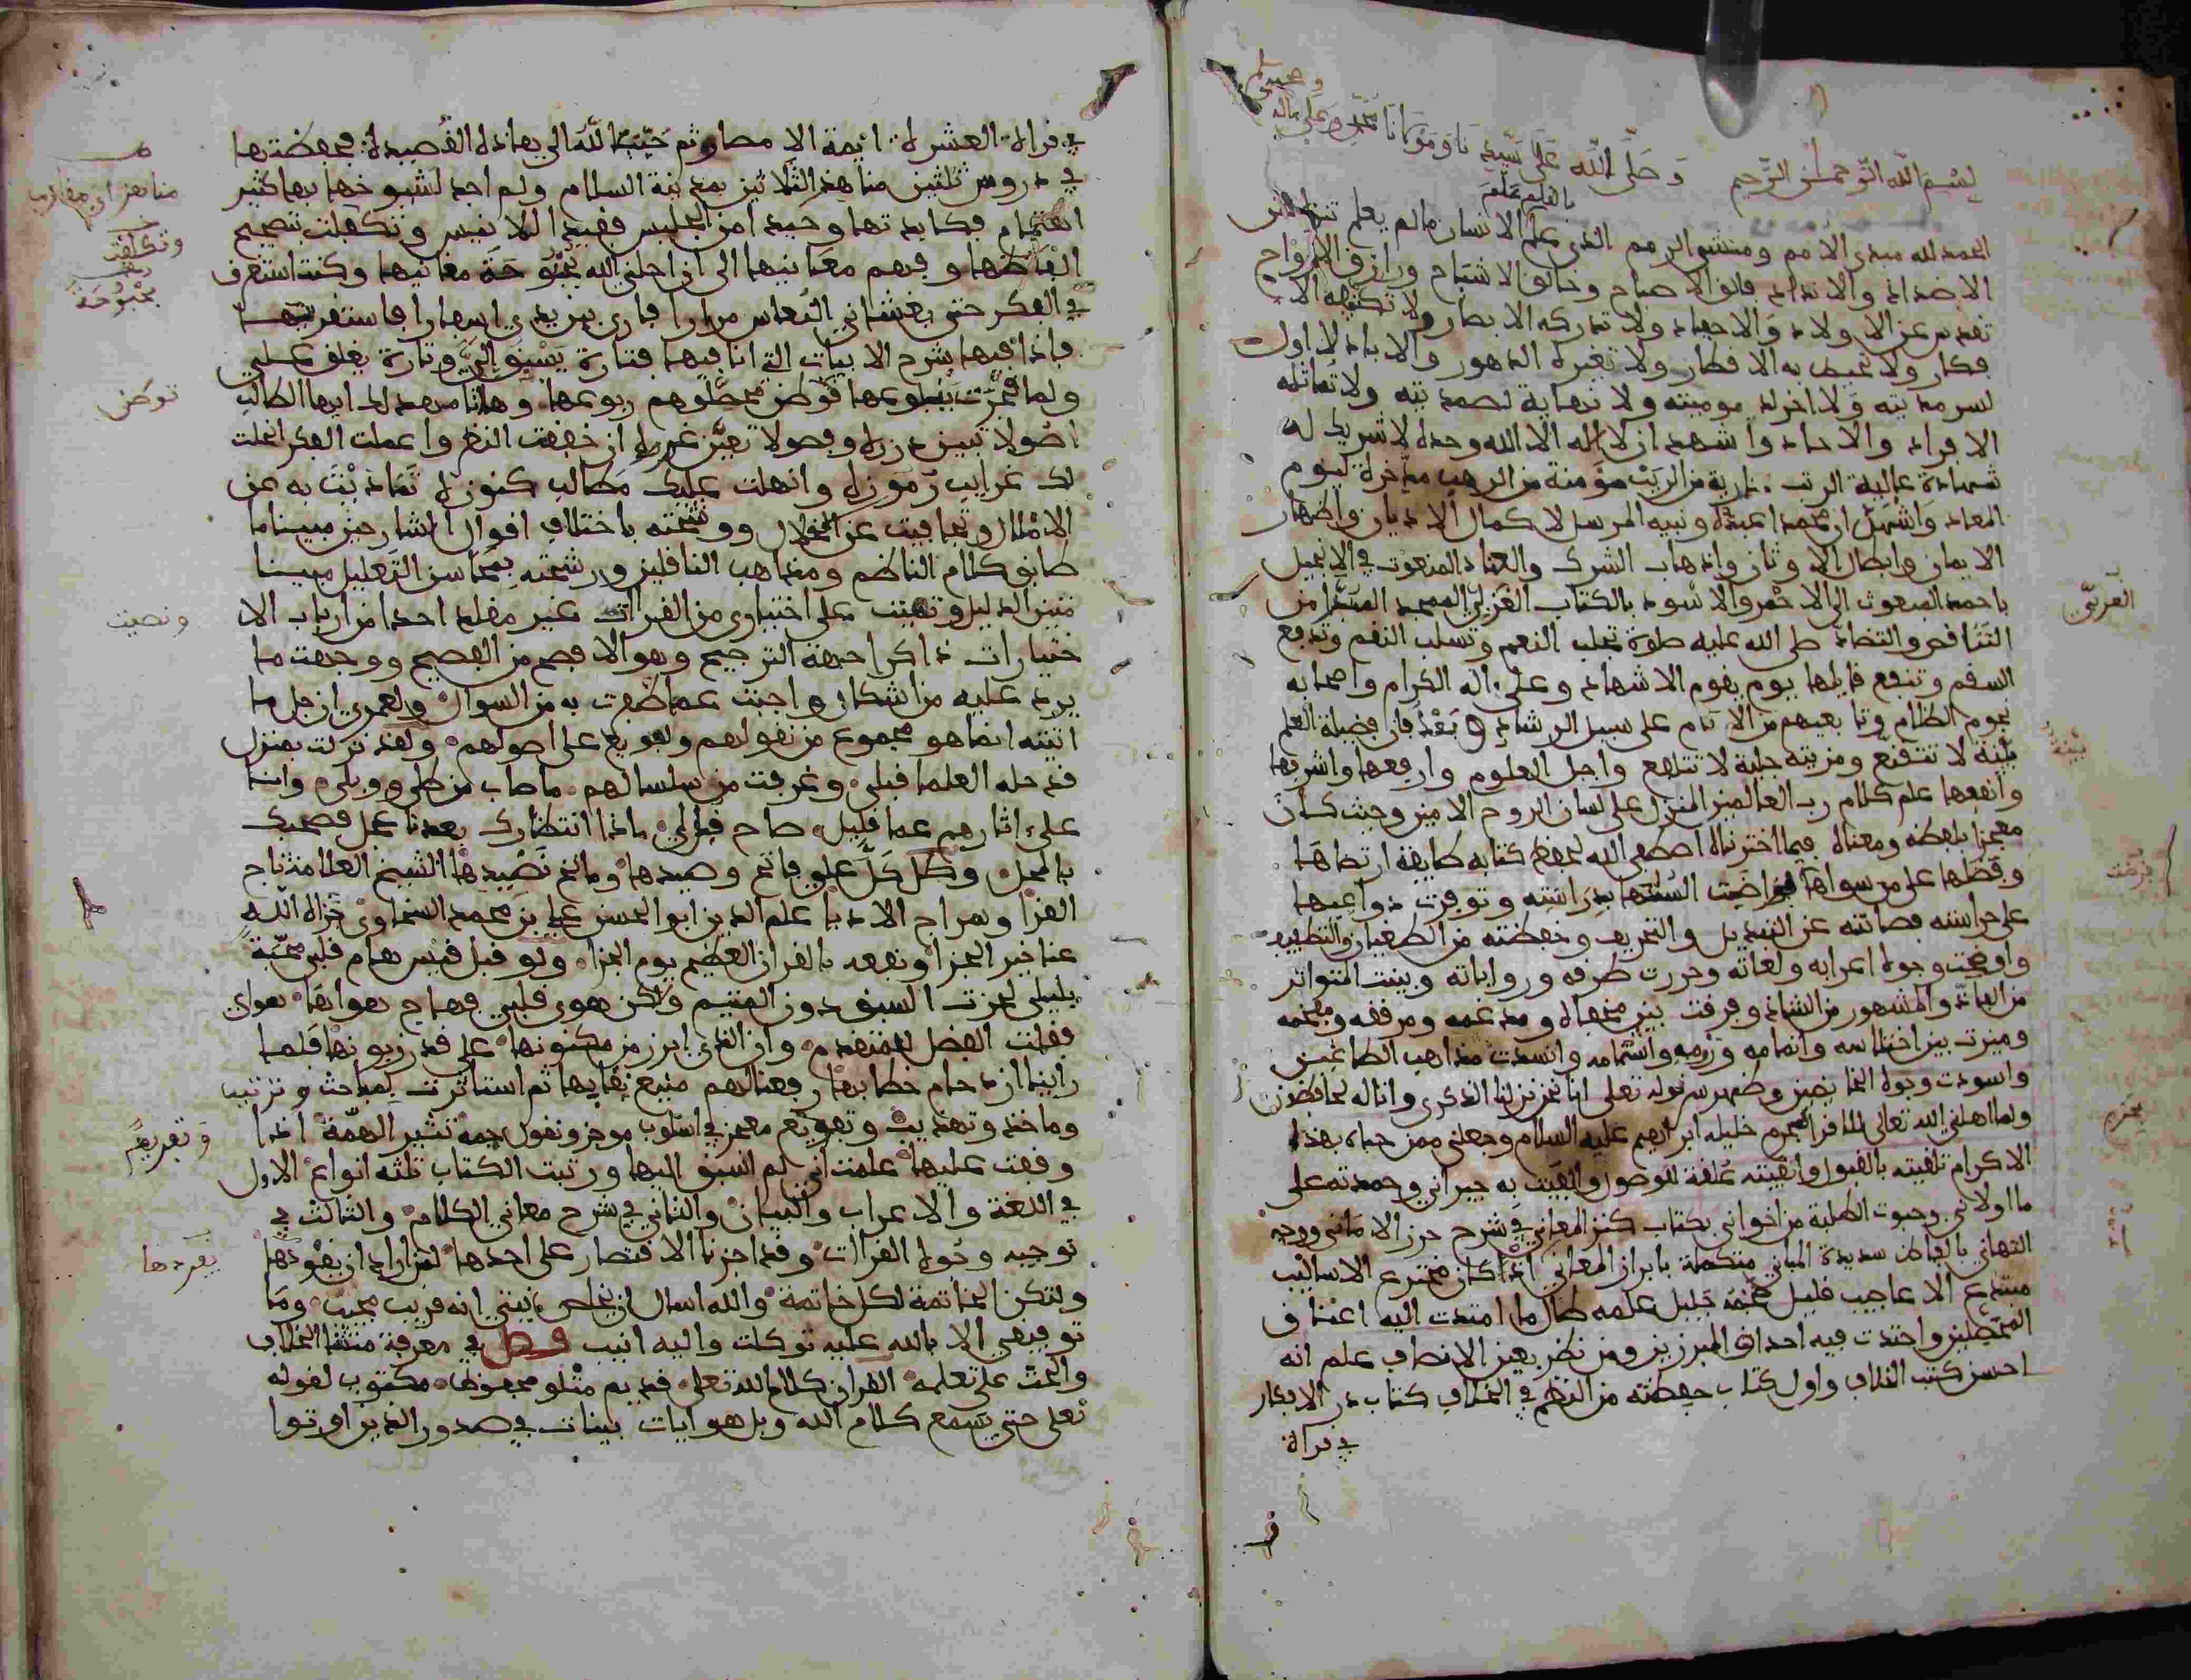 بسم الله الرحمن الرحيم وصلى الله على سيدنا ومولانا محمد وعلى ءاله
وصحبه وسلم
الحمد لله مبدي الامم ومنشي الرمم الذي علم بالقلم علم الانسان ما لم يعلم تنزه عن
الاضداد والانداد فالق الاصباح وخالق الاشباح ورازق الارواح
تقدس عن الاولاد والاحفاد ولا تدركه الابصار ولا تكتنهه الا
فكار ولا تحيط به الاقطار ولا تغيره الدهور والاباد لا اول
لسرمديته ولا اخر لديموميته ولا نهاية لصمديته ولا تماثله
الافراد والاحاد واشهد ان لا اله الا الله وحده لا شريك له
شهادة عالية الرتب عارية من الريب مؤمنة من الرهب مدخرة ليوم
المعاد واشهد ان محمدا عبده ونبيه المرسل لاكمال الاديان واظهار
الايمان وابطال الاوثان واذهاب الشرك والعناد المنعوت في الانجيل
باحمد المبعوث الى الاحمر والاسود بالكتاب العزيز الممجد المبرا من
التناقض والتضاد صلى الله عليه صلوة تجلب النعم وتسلب النقم وتدفع
السقم وتنفع قايلها يوم يقوم الاشهاد وعلى ءاله الكرام واصحابه
نجوم الظلام وتابعيهم من الانام على سبيل الرشاد وبعد فان فضيلة العلم
بينة لا تتقنع ومزيته جلية لا تتلفع واجل العلوم وارفعها واشرفها
وانفعها علم كلام رب العالمين المنزل على لسان الروح الامين وحيث كان
معجزا بلفظه ومعناه فيما اخترناه اصطفى الله لحفظ كتابه طايفة ارتضاها
وفضلها على من سواها فراضت السنتها بدراسته وتوفرت دواعيها
على حراسته فصانته عن التبديل والتحريف وحفظته من الطغيان والتطفيف
واوضحت وجوه اعرابه ولغاته وحررت طرقه ورواياته وبينت المتواتر
من الفاذ والمشهور من الشاذ وفرقت بين مخفاه ومدغمه ومرققه ومفخمه
وميزت بين اختلاسه واتمامه ورومه واشمامه وانسدت مذاهب الطاعنين
واسودت وجوه الخايضين وظهر سر قوله تعلى انا نحن نزلنا الذكر وانا له لحافظون
ولما اهلني الله تعالى للقا حرم خليله ابراهيم عليه السلام وجعلني ممن حباه بهذا
الاكرام تلقيته بالقبول والقيته علقة للوصول واتحفت به جيراني وحمدته على
ما اولاني وحبوت الطلبة من اخواني بكتاب كنز المعاني في شرح حرز الاماني ووجه
التهاني بالفاظ سديدة المباني متكفلة بابراز المعاني اذ كان مخترع الاساليب
مبتدع الاعاجيب قليل حجمه جليل علمه طال ما امتدت اليه اعناق
المحصلين واحتدت فيه احداق المبرزين ومن نظر بعين الانصاف علم انه
احسن كتب الخلاف واول كتاب حفظته من النظم في الخلاف كتاب در الافكار
في قراة
العزيز
بينة
في قراة العشرة ايمة الامصار ثم حبب الله الي هاذه القصيدة فحفظتها
في دروس ثلثين مناهز الثلاثين بمدينة السلام ولم اجد لشيوخها بها كثير
اهتمام فكابدتها وحيدا من الجليس فقيدا للانيس وتكفلت بتصحيح
الفاظها وفهم معانيها الى ان احلني الله بحبوحة مغانيها وكنت استغرق
في الفكر حتى يغشاني النعاس مرارا فارى بين يدي اسفارا فاستقريتها
فاذا فيها شرح الابيات التي انا فيها فتارة يسبق الي وتارة يغلق علي
ولما نحرت بتبلوعها توطن محصلوهم ربوعها وهانا مهد لك ايها الطالب
اصولا تبين درره وفصولا تعين غرره ان حققت النظر واعملت الفكر انجلت
لك غرايب رموزه وانهلت عليك مطالب كنوزه تماديت به عن
الاملال وتجافيت عن الاخلال ووشحته باختلاف اقوال الشارحين مبينا ما
طابق كلام الناظم ومذاهب الناقلين ورشحته بمحاسن التعليل مبينا
متين الدليل ونصيت على اختياري من القراات غير مقلد احدا من ارباب الا
ختيارات ذاكرا جهة الترجيح وهو الافصح من الفصيح ووجهت ما
يرد عليه من اشكال واجبت عما ظفرت به من السوال ولعمري ان جل ما
اتيته انما هو مجموع من نقولهم ومفرع على اصولهم ولقد نزلت بمنزل
قد حله العلما قبلي وغرفت من سلسالهم ما صاب من طلي ووبلي وانا
على اثارهم عما قليل صاح قل لي ماذا انتظارك بعدنا عجل فصحبك
بالمحل وكل كل علي فاتح وصيدها ومانح نضيدها الشيخ العلامة تاج
القرا وسراج الادبا علم الدين ابو الحسن علي بن محمد السخاوي جزاه الله
عنا خير الجزا ونفعه بالقران العظيم يوم الجزاء ولو قبل قيس هام قلبي محبة
بليلى لحزت السبق دون المتيم ولكن هوى قلبي فهاج هواها هواي
فقلت الفضل للمتقدم وان الذي ابرز من مكنونها على قدر زبونها فلما
راينا ازدحام خطابها رفعنا لهم منيع نقابها ثم استاثرت بمباحث وترتيب
وماخذ وتهذيب وتفريع معجز في اسلوب موجز ونقول جمة تثير الهمة اذا
وقفت عليها علمت اني لم اسبق اليها ورتبت الكتاب ثلثه انواع الاول
في اللغة والاعراب والبيان والثاني في شرح معاني الكلام والثالث في
توجيه وجوه القراات وقد اجزنا الاقتصار على احدها لمن اراد ان يفردها
ولتكن الخاتمة لكل خاتمة والله اسال ان يخلص نيتي انه قريب مجيب وما
توفيقي الا بالله عليه توكلت واليه انيب فصل في معرفة منشا الخلاف
والحث على تعلمه القران كلام الله تعلى قديم متلو محفوظ مكتوب لقوله
تعلى حتى يسمع كلام الله وبل هو ايات بينات في صدور الذين اوتوا
مناهز اي مقارب
وتكلفت
بحبوحة
توطن
ونصيت
وتفريع
يفردها